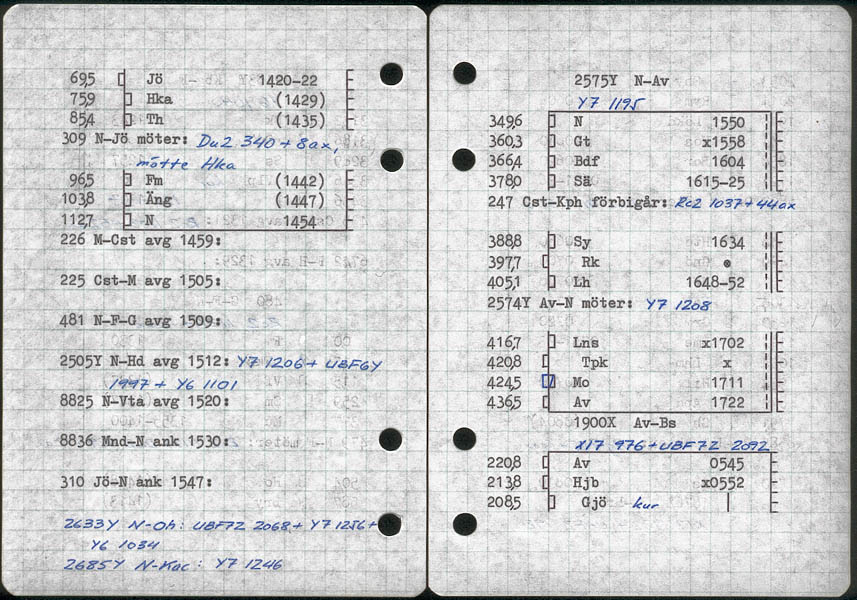 69,5 Jö 1420-22
75,9 Hka (1429)
85,4 Th (1435)
309 N-Jö möter: Du2 340 + 8ax,
mötte Hka
96,5 Fm (1442)
103,8 Äng (1447)
112,7 N 1454
226 M-Cst avg 1459:
225 Cst-M avg 1505:
481 N-F-G avg 1509:
2505Y N-Hd avg 1512: Y7 1206 + UBF6Y
1997 + Y6 1101
8825 N-Vta avg 1520:
8836 Mnd-N ank 1530:
310 Jö-N ank 1547:
2633Y N-Oh: UBF7Z 2068 + Y7 1256 +
Y6 1034
2685Y N-Kac: Y7 1246
2575Y N-Av
Y7 1195
349,6 N 1550
360,3 Gt x1558
366,4 Bdf 1604
378,0 Sä 1615-25
247 Cst-Kph förbigår: Rc2 1037 + 44ax
388,8 Sy 1634
397,7 Rk
405,1 Lh 1648-52
2574Y Av-N möter: Y7 1208
416,7 Lns x1702
420,8 Tpk x
424,5 Mo 1711
436,5 Av 1722
1900X Av-Bs
X17 976 + UBF7Z 2092
220,8 Av 0545
213,8 Hjb x0552
208,5 Gjö kur |